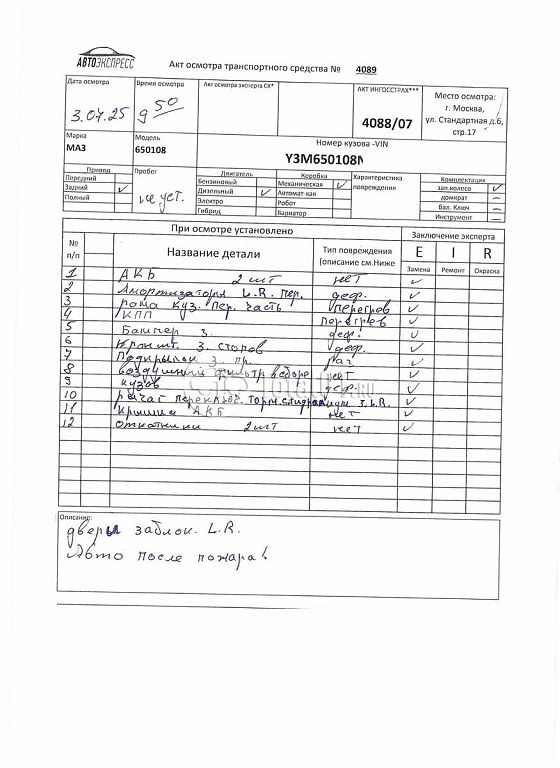 АВТОЭКСПРЕСС
Акт осмотра транспортного средства № 4089
Дата осмотра
3.07.25
Время осмотра
9 50
Акт осмотра эксперта СК*
АКТ ИНГОССТРАХ***
4088/07
Место осмотра:
г. Москва,
ул. Стандартная д.6,
стр.17
Марка
МАЗ
Модель
650108
Номер кузова -VIN
Y3M650108
Привод
Передний
Задний ✓
Полный
Пробег
не уст.
Двигатель
Бензиновый
Дизельный ✓
Электро
Гибрид
Коробка
Механическая ✓
Автомат-кая
Робот
Вариатор
Характеристика
повреждения
Комплектация
зап.колесо ✓
домкрат –
бал. Ключ –
Инструмент –
При осмотре установлено
Заключение эксперта
№
п/п
Название детали
Тип повреждения
(описание см.Ниже
E I R
Замена Ремонт Окраска
1 АКБ 2 шт нет ✓
2 Амортизаторы L.R. пер. деф. ✓
3 рама куз. пер. часть перегрев ✓
4 КПП перегрев ✓
5 Бампер з. деф. ✓
6 Кроншт. з. стопов деф. ✓
7 Подкрылок з. пр. раз. ✓
8 воздушный фильтр в сборе нет ✓
9 кузов деф. ✓
10 рычаг переключ. торм. з. L.R. ✓
11 крышка АКБ нет ✓
12 2 шт нет ✓
Описание:
двери заблок. L.R.
Авто после пожара!